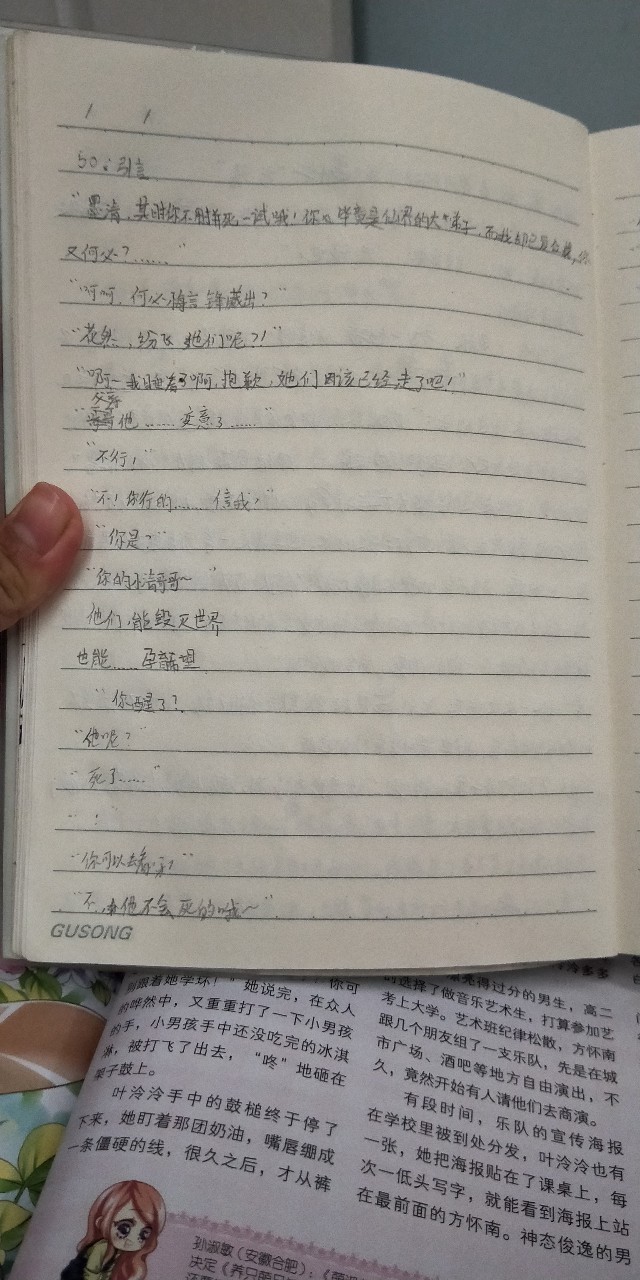 50：引言
"墨清，其时你不用拼死一试哦！你 毕竟是仙界的大 弟子，而我却已
又何必？……"
"呵呵，何必 言锋藏出？"
"花 ， 她们呢？！"
"啊~我睡着了啊，抱歉，她们因该已经走了吧！"
父亲
"他……变意了……"
"不行！"
"不！你行的……信我，"
"你是？"
"你的 哥哥~"
他们，能毁灭世界
也能……孕 希望
"你醒了？
"他呢？"
"死了……"
"！"
"你可以去看 ！"
"不，他不会死的哦~"
GUSONG
别跟着她学坏！"她说完，在众人
的哗然中，又重重打了一下小男孩
的手，小男孩手中还没吃完的冰淇
淋，被打飞了出去，"咚"地砸在
架子鼓上。
叶泠泠手中的鼓槌终于停了
下来，她盯着那团奶油，嘴唇绷成
一条僵硬的线，很久之后，才从裤
漂亮得过分的男生，高二
时选择了做音乐艺术生，打算参加艺
考上大学。艺术班纪律松散，方怀南
跟几个朋友组了一支乐队，先是在城
市广场、酒吧等地方自由演出，不
久，竟然开始有人请他们去商演。
有段时间，乐队的宣传海报
在学校里被到处分发，叶泠泠也有
一张，她把海报贴在了课桌上，每
次一低头写字，就能看到海报上站
在最前面的方怀南。神态俊逸的男
孙淑敏（安徽合肥）：《
决定《养只萌